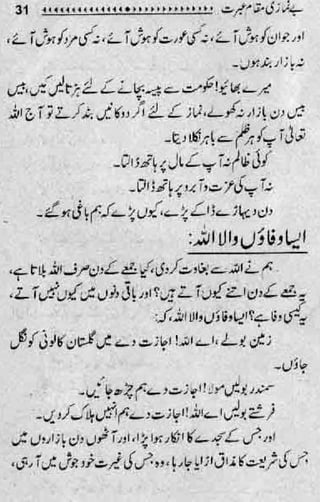 بے نمازی مقام عبرت 31
اور جوان کو ہوش آئے، نہ کسی عورت کو ہوش آئے، نہ کسی مرد کو ہوش آئے،
نہ بازار بند ہوں۔
میرے بھائیو! حکومت سے پیسہ بچانے کے لئے ہڑتالیں کیں، بیس
بیس دن بازار نہ کھولے، نماز کے لئے اگر دوکانیں بند کرتے تو آج اللہ
تعالیٰ آپ کو ہر ظلم سے باہر نکلا دیتا۔
کوئی ظالم نہ آپ کے مال پر ہاتھ ڈالتا۔
نہ آپ کی عزت و آبرو پر ہاتھ ڈالتا۔
دن دیہاڑے ڈاکے پڑے، کیوں پڑے کہ ہم باغی ہو گئے۔
ایسا وفاؤں والا اللہ:
ہم نے اللہ سے بغاوت کر دی، کیا جمعے کے دن صرف اللہ بلاتا ہے،
یہ جمعے کے دن اتنے کیوں آتے ہیں؟ اور باقی دنوں میں کیوں نہیں آتے،
یہ کیسی وفا ہے؟ ایسا وفاؤں والا اللہ، کہ:
زمین بولے، اے اللہ! اجازت دے میں گلستان کالونی کو نگل
جاؤں۔
سمندر بولیں مولا! اجازت دے ہم چڑھ جائیں۔
فرشتے بولیں اے اللہ! اجازت دے ہم انہیں ہلاک کر دیں۔
اور جس کے سجدے کا انکار ہوا پڑا، اور آٹھوں دن بازاروں میں
جس کی شریعت کا مذاق اڑایا جا رہا، وہ جس کی غیرت خود جوش میں آ رہی،